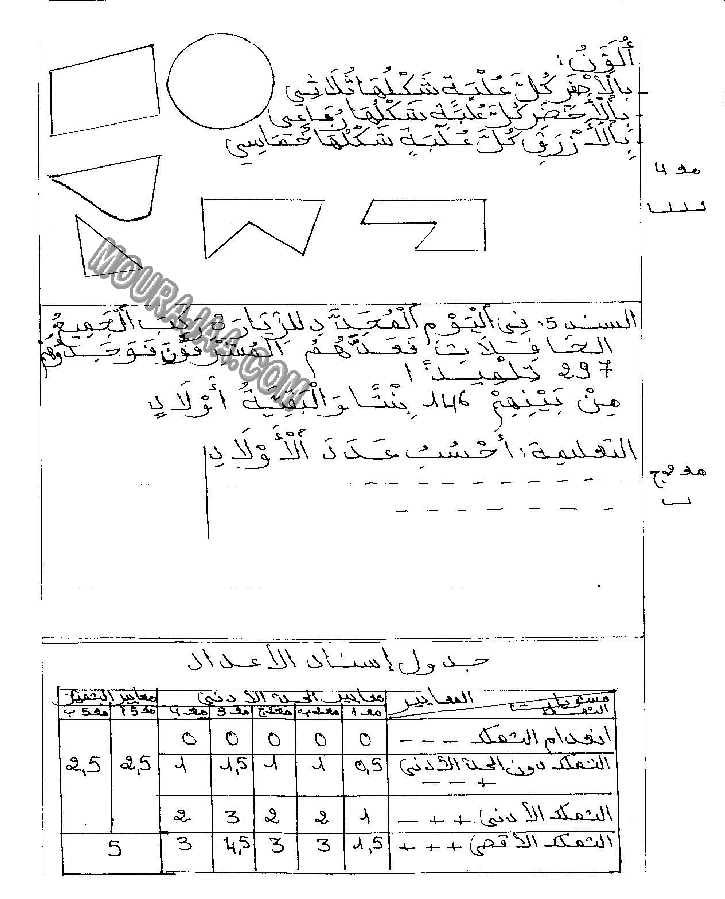 أُلَوِّنُ:
- بِالْأَصْفَرِ كُلَّ عُلْبَةٍ شَكْلُهَا ثُلَاثِي
- بِالْأَخْضَرِ كُلَّ عُلْبَةٍ شَكْلُهَا رُبَاعِي
- بِالْأَزْرَقِ كُلَّ عُلْبَةٍ شَكْلُهَا خُمَاسِي
مع 4
MOURAJAA.COM
السند 5: فِي الْيَوْمِ الْمُحَدَّدِ لِلزِّيَارَةِ رَكِبَ الْجَمِيعُ
الحَافِلَاتِ فَعَدَّهُمُ الْمُشْرِفُونَ فَوَجَدُوهُمْ
297 تِلْمِيذًا
مِنْ بَيْنِهِمْ 146 بِنْتًا وَالْبَقِيَّةُ أَوْلَادٍ
التعليمة: أَحْسُبُ عَدَدَ الْأَوْلَادِ
مع 2 ج
جدول إسناد الأعداد
المعايير معايير الحد الأدنى معايير التميز
مع 1 مع 2 ب مع 2 ج مع 3 مع 4 مع 5 أ مع 5 ب
انعدام التملك - - - 0 0 0 0 0
التملك دون الحد الأدنى + - - 0,5 1 1 1,5 1 2,5 2,5
التملك الأدنى + + - 1 2 2 3 2
التملك الأقصى + + + 1,5 3 3 4,5 3 5